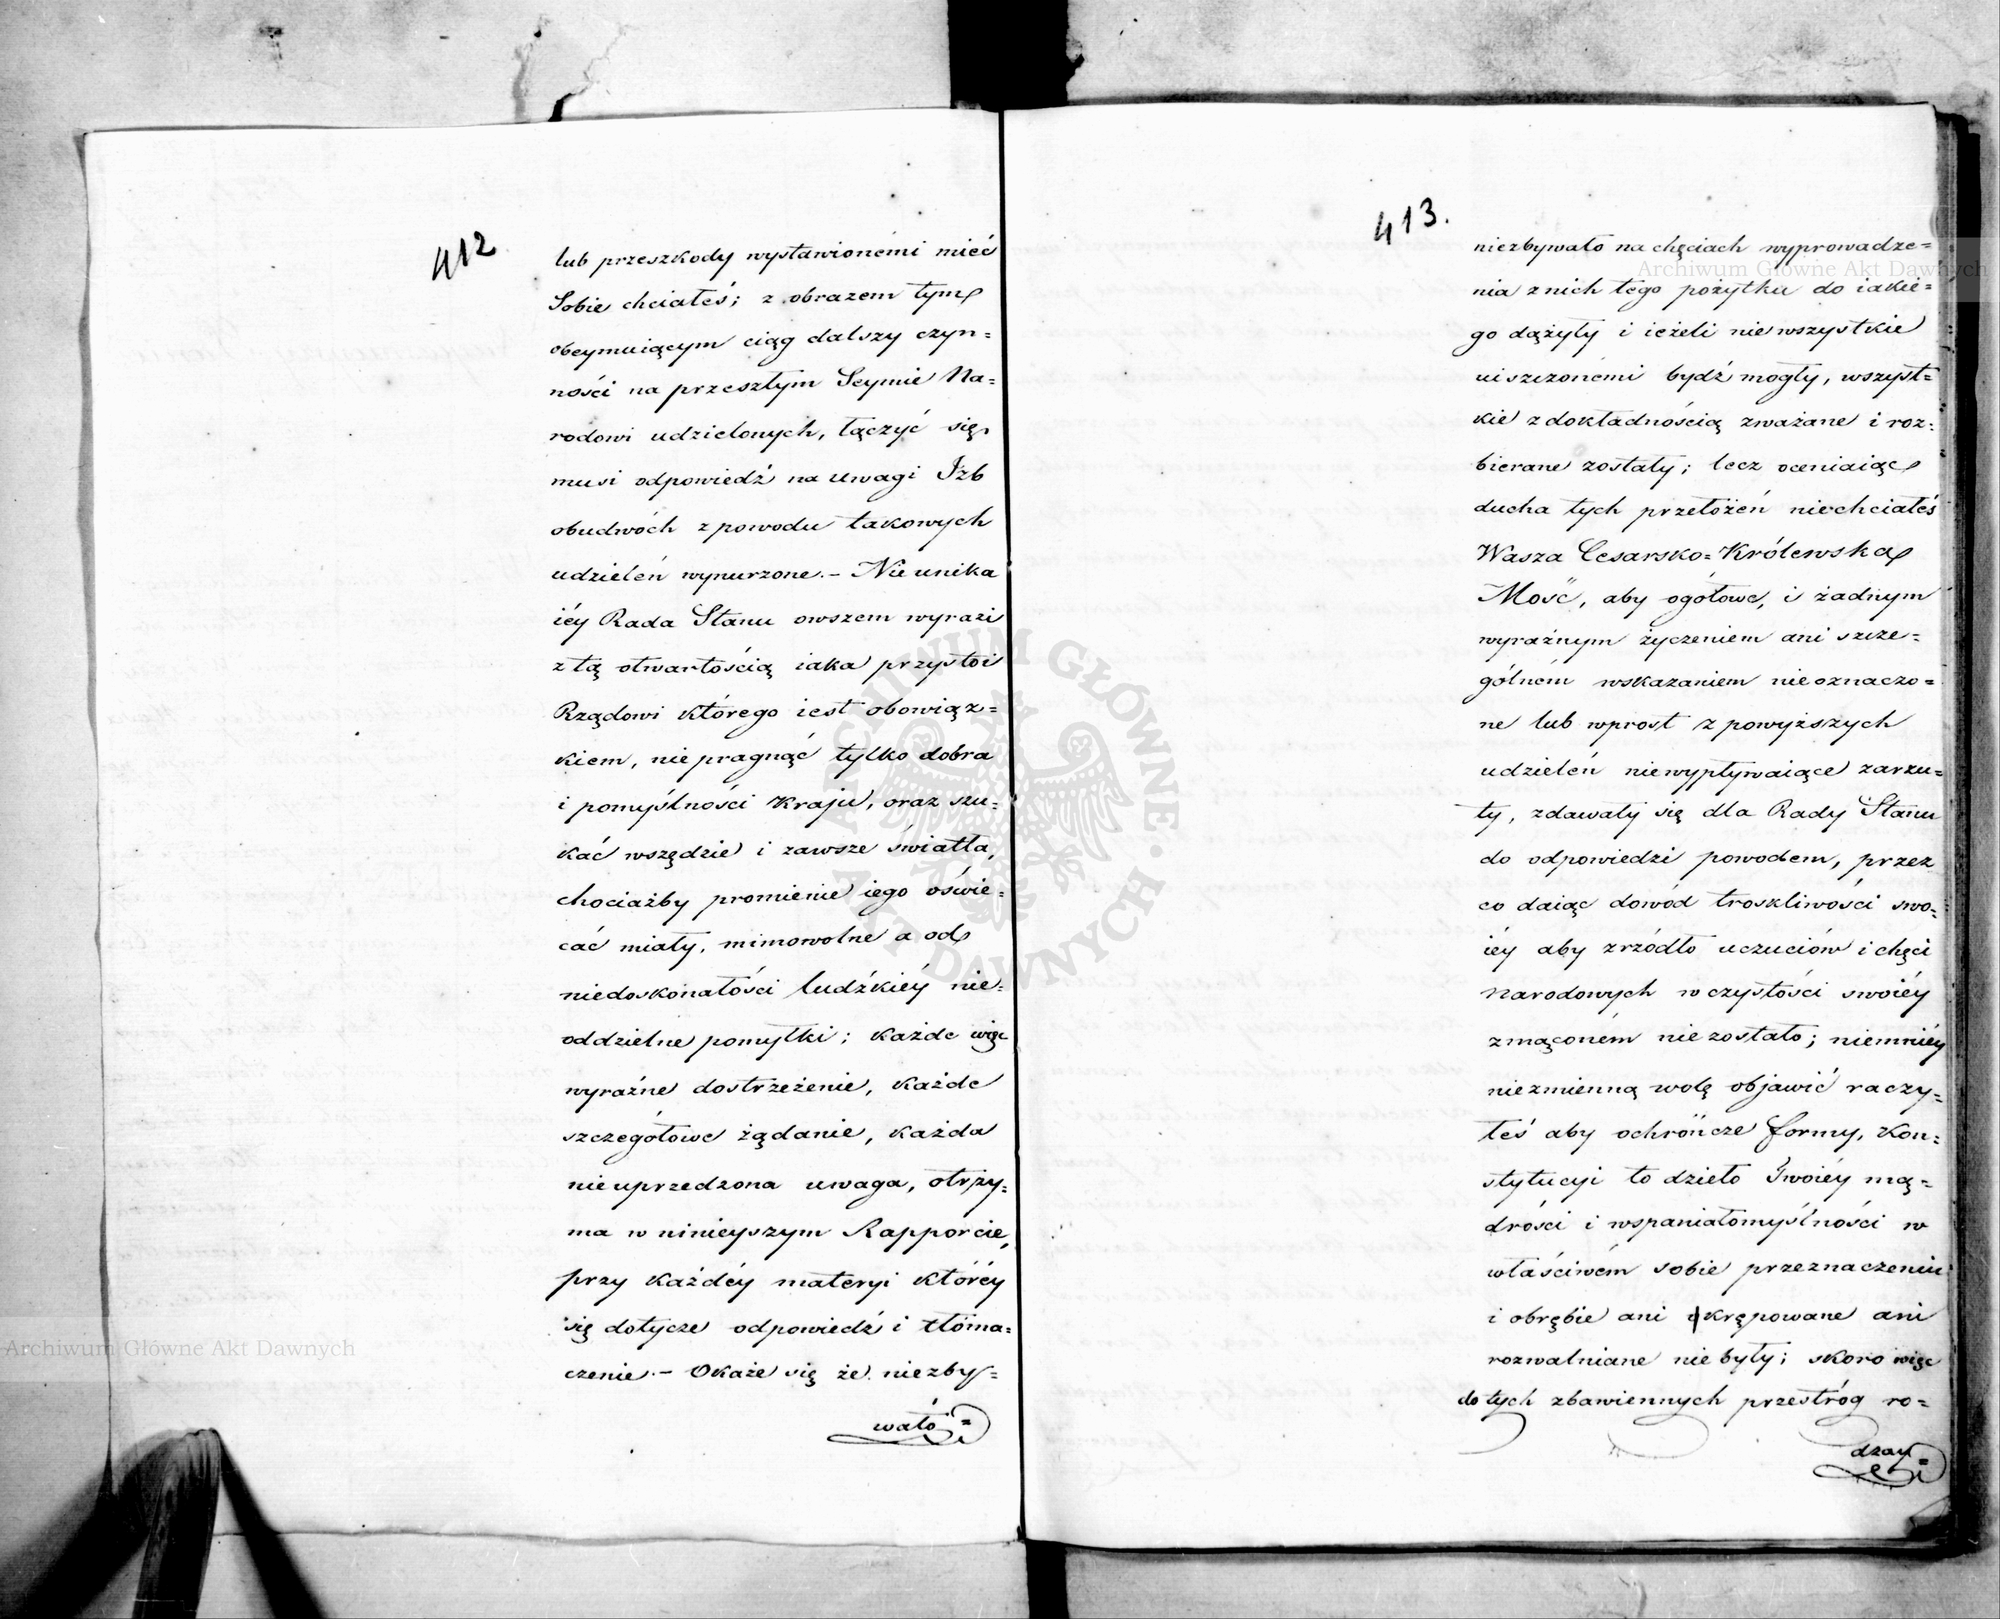 412
lub przeszkody wystawionémi mieć
Sobie chciałeś; z obrazem tym
obeymuiącym ciąg dalszy czyn=
ności na przeszłym Seymie Na=
rodowi udzielonych, łączyć się
musi odpowiedź na uwagi Izb
obudwóch z powodu takowych
udzieleń wynurzone.– Nie unika
iéy Rada Stanu owszem wyrazi
z tą otwartością iaka przystoi
Rządowi którego iest obowiąz=
kiem, nie pragnąć tylko dobra
i pomyślności Kraju, oraz szu=
kać wszędzie i zawsze światła,
chociażby promienie iego oświe=
cać miały, mimowolne a od
niedoskonałości ludzkiéy nie=
oddzielne pomyłki; każde więc
wyraźne dostrzeżenie, każde
szczegółowe żądanie, każda
nieuprzedzona uwaga, otrzy=
ma w ninieyszym Rapporcie,
przy każdéy materyi któréy
się dotycze odpowiedź i tłóma=
czenie.– Okaże się że niezby=
wało=
413.
niezbywało na chęciach wyprowadze=
nia z nich tego pożytku do iakie=
go dążyły i ieżeli nie wszystkie
uiszczonémi bydź mogły, wszyst=
kie z dokładnością zważane i roz=
bierane zostały; lecz oceniaiąc
ducha tych przełożeń niechciałeś
Wasza Cesarsko=Królewska
Mość, aby ogółowe, i żadnym
wyraźnym życzeniem ani szcze=
gólném wskazaniem nieoznaczo=
ne lub wprost z powyższych
udzieleń niewypływaiące zarzu=
ty, zdawały się dla Rady Stanu
do odpowiedzi powodem, przez
co daiąc dowód troskliwości swo=
iéy aby zrzódło uczuciów i chęci
Narodowych w czystości swoiéy
zmąconém nie zostało; niemniéy
niezmienną wolę objawić raczy=
łeś aby ochrończe formy, Kon=
stytucyi to dzieło Twoiéy mą=
drości i wspaniałomyślności w
właściwém sobie przeznaczeniu
i obrębie ani skrępowane ani
rozwalniane nie były; skoro więc
do tych zbawiennych przestróg ro=
dzay=
Archiwum Główne Akt Dawnych
Archiwum Główne Akt Dawnych
ARCHIWUM GŁÓWNE AKT DAWNYCH